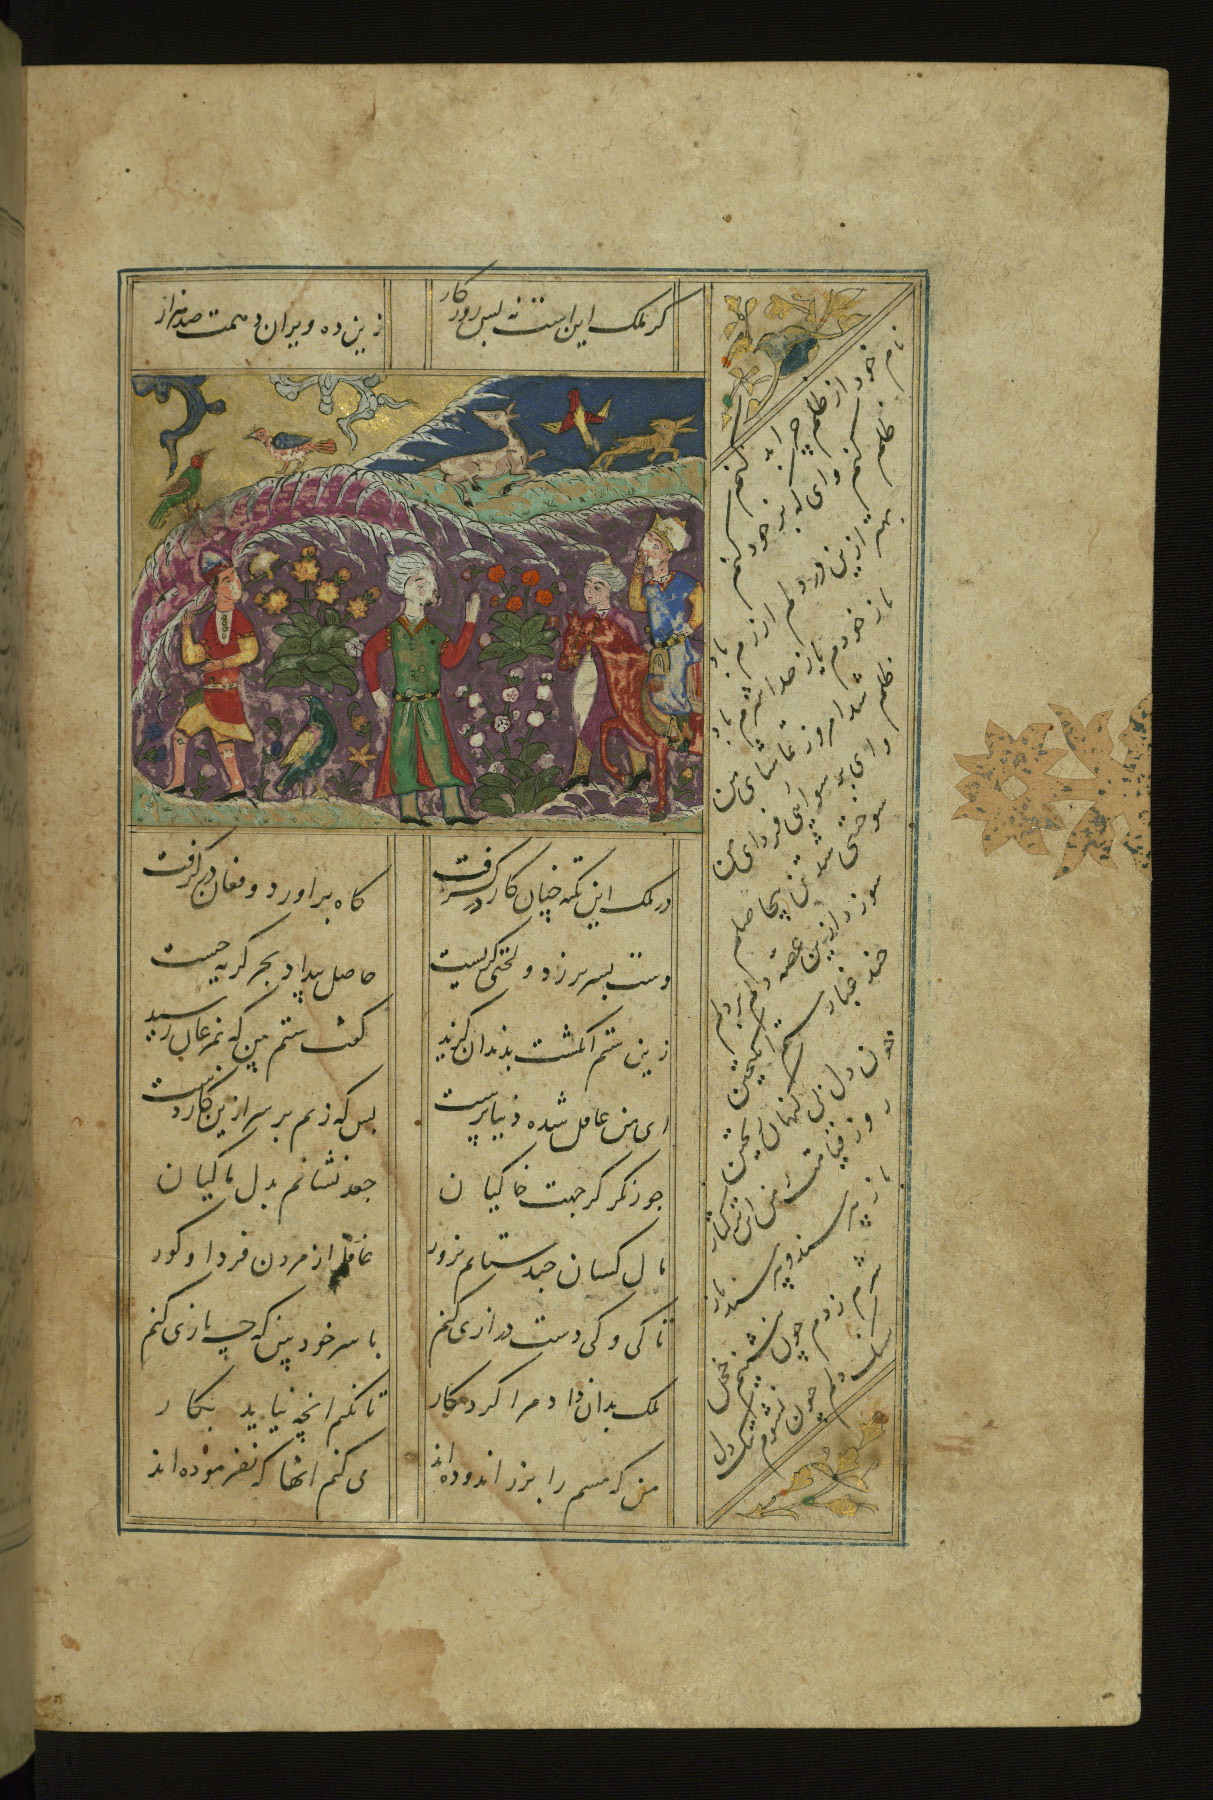 کر ملک این است نه بس روزکار زین ده ویران دهمت صد هزار
در ملک این نکته چنان کار در گرفت کاه براورد و فغان در گرفت
دست بسر بر زد و لختی گریست حاصل بیداد بجز گریه چیست
زین ستم انکشت بدندان گزید گفت ستم بین که بمرغان رسید
ای من غافل شده دنیا پرست بس که زنم بر سر ازین کار دست
جور نکر کز جهت خاکیان جغد نشانم بدل ماکیان
مال کسان چند ستانم بزور غافل از مردن فردا و کور
تا کی و کی دست درازی کنم با سر خود بین که چه بازی کنم
ملک بدان داد مرا کردکار تا نکنم انچه نیاید بکار
من که مسم را بزر اندوده‌اند می کنم انها که نفرموده‌اند
نام خود از ظلم چرا بد کنم
ظلم کنم وای که بر خود کنم
بهتر ازین در دلم ازرم باد
یا ز خدا یا ز خودم شرم باد
ظلم شد امروز تماشای من
وای بر سوایی فردای من
سوختنی شد تن بیحاصلم
سوزد ازین غصه دلم بر دلم
چند غبار ستم انگیختن
خون دل کسان ریختن
روز قیامت ز من این ترکتاز
باز بپرسند و بپرسند باز
شرم زدم چون ننشینم خجل
سنک دلم چون نشوم تنک دل